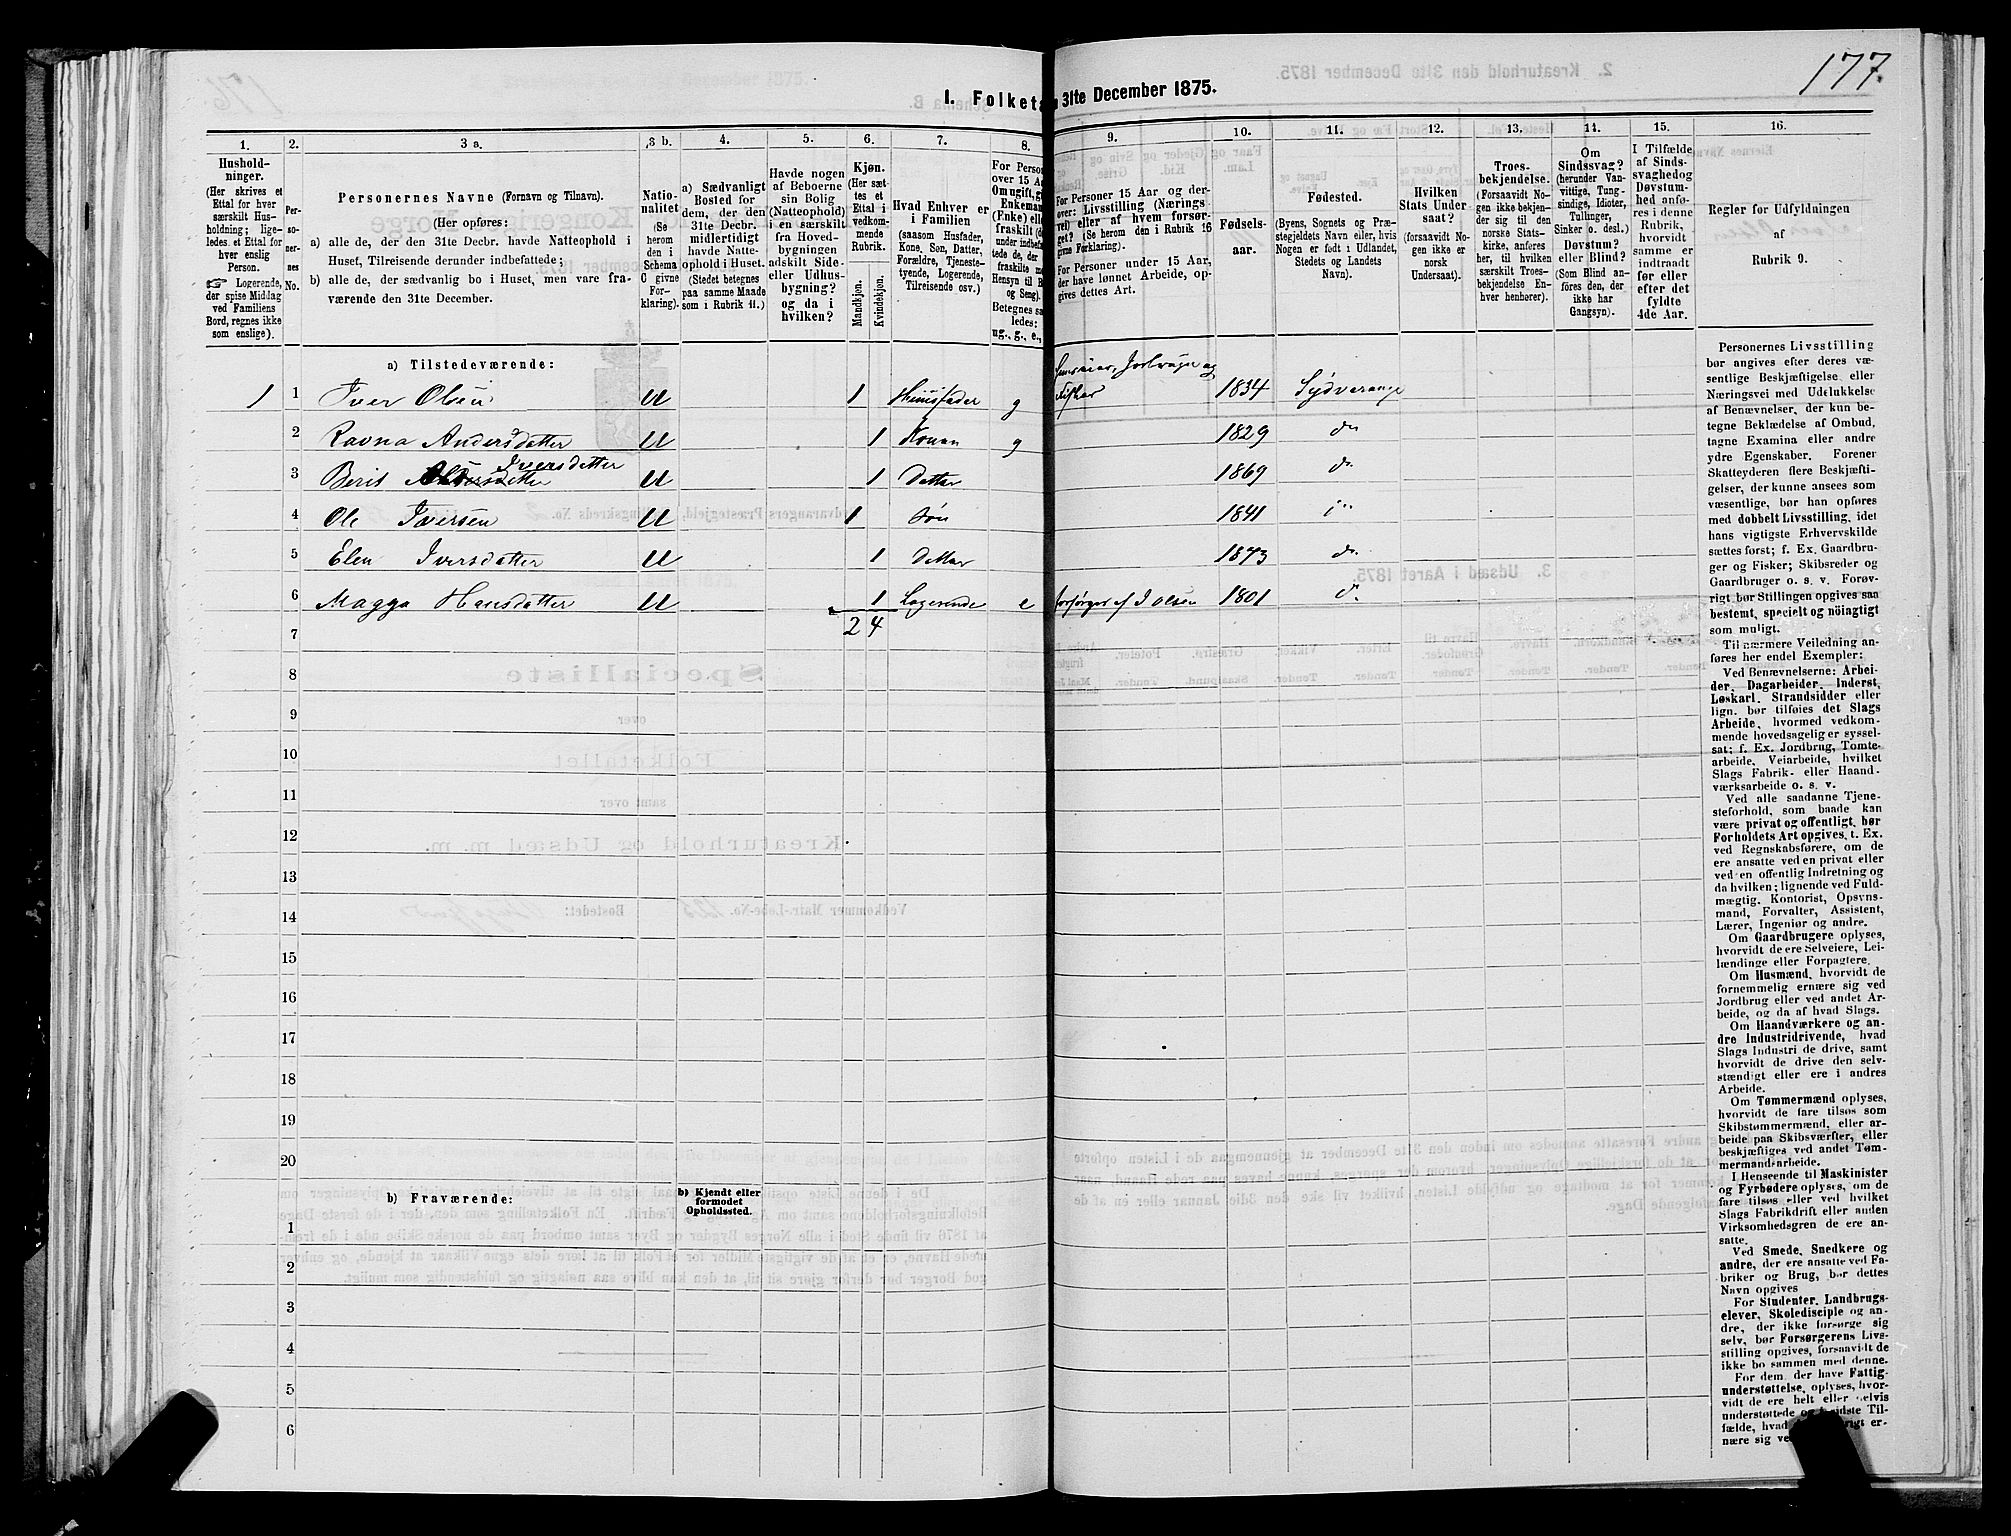 177.
I. Folketa
31te December 1875.
1.
Hushold-
ninger.
(Her skrives et
Ettal for hver
særskilt Hus-
holdning; lige-
ledes et Ettal for
hver enslig
Person.
☞ Logerende,
der spise Middag
ved Familiens
Bord, regnes ikke
som enslige).
2.
Per-
so-
ner-
nes
No.
3 a.
Personernes Navne (Fornavn og Tilnavn).
(Her opføres:
a) alle de, der den 31te Decbr. havde Natteophold i
Huset, Tilreisende derunder indbefattede;
b) alle de, der sædvanlig bo i Huset, men vare fra-
værende den 31te December.
3 b.
Natio-
nalitet
(Se
herom
den i
Schema
C givne
For-
klaring).
4.
a) Sædvanligt
Bosted for
dem, der den
31te Decbr.
midlertidigt
havde Natte-
ophold i Huset.
(Stedet betegnes
paa samme Maade
som i Rubrik 11.)
5.
Havde nogen
af Beboerne
sin Bolig
(Natteophold)
i en særskilt
fra Hoved-
bygningen
adskilt Side-
eller Udhus-
bygning?
og da i
hvilken?
6.
Kjøn.
(Her sæt-
tes et
Ettal i
vedkom-
mende
Rubrik.
Mandkjøn.
Kvindekjøn.
7.
Hvad Enhver er
i Familien
(saasom Husfader,
Kone, Søn, Datter,
Forældre, Tjeneste-
tyende, Logerende,
Tilreisende osv.)
8.
For Person
over 15 A
Om ugift, gi
Enkeman
(Enke) ell
fraskilt
under indbefat-
tede de, der
fraskilte m
Hensyn til B
og Seng).
Betegnes sa
ledes:
ug., g., e.,
9.
For Personer 15 Aar og der-
over: Livsstilling (Nærings-
vei) eller af hvem forsør-
get? (Se herom den i Rubrik 16
givne Forklaring).
For Personer under 15 Aar,
der have lønnet Arbeide, op-
gives dettes Art.
10.
Fødsels-
aar.
11.
Fødested.
(Byens, Sognets og Præ-
stegjeldets Navn eller, hvis
Nogen er født i Udlandet,
Stedets og Landets
Navn).
12.
Hvilken
Stats Under
saat?
(forsaavidt No-
gen ikke er
norsk
Undersaat).
13.
Troes-
bekjendelse.
(Forsaavidt No-
gen ikke bekjen-
der sig til den
norske Stats-
kirke, anføres
her, til hvilken
særskilt Troes-
bekjendelse En-
hver henhører).
14.
Om
Sindssvag?
(herunder Van-
vittige, Tung-
sindige, Idioter,
Tullinger,
Sinker o. desl.)
Døvstum?
eller Blind?
(Som Blind an-
føres den, der
ikke har
Gangsyn).
15.
I Tilfælde
af Sinds-
svaghed og
Døvstum-
hed anfø-
res i denne
Rubrik,
hvorvidt
samme er
indtraadt
før eller
efter det
fyldte
4de Aar.
16.
Regler for Udfyldningen
af
Rubrik 9.
a) Tilstedeværende:
1 1 Iver Olsen U 1 Huusfader g Fisker 1834 Sydvarange
2 Ravna Andersdatter U 1 Konen g 1829 do
3 Berit Iversdatter U 1 Datter 1869 do
4 Ole Iversen U 1 Søn 1841
5 Elen Iversdatter U 1 Datter 1873 do
6 Magga Hansdatter U 1 Logerende e forsørges af I Olsen 1801
7 2 4
8
9
10
11
12
13
14
15
16
17
18
19
20
b) Fraværende:
b) Kjendt eller
formodet
Opholdssted.
1
2
3
4
5
6
Personernes Livsstilling
bør angives efter deres væ-
sentlige Beskjæftigelse eller
Næringsvei med Udelukkelse
af Benævnelser, der kun be-
tegne Beklædelse af Ombud,
tagne Examina eller andre
ydre Egenskaber. Forener
Skatteyderen flere Beskjæfti-
gelser, der kunne ansees som
væsentlige, bør han opføres
med dobbelt Livsstilling, idet
hans vigtigste Erhvervskilde
sættes først; f. Ex. Gaardbru-
ger og Fisker; Skibsreder og
Gaardbruger o. s. v. Forøv-
rigt bør Stillingen opgives saa
bestemt, specielt og nöiagtig
som muligt.
Til nærmere Veiledning an-
føres her endel Exempler:
Ved Benævnelserne: Arbei-
der, Dagarbeider, Inderst,
Løskarl, Strandsidder eller
lign. bør tilføies det Slags
Arbeide, hvormed vedkom-
mende hovedsagelig er syssel-
sat; f. Ex. Jordbrug, Tomte-
arbeide, Veiarbeide, hvilket
Slags Fabrik- eller Haand-
værksarbeide o. s. v.
Ved alle saadanne Tjene-
steforhold, som baade kan
være privat og offentligt, bør
Forholdets Art opgives, t. Ex.
ved Regnskabsførere, om de
ere ansatte ved en privat eller
ved en offentlig Indretning og
da hvilken; lignende ved Fuld-
mægtig, Kontorist, Opsyns-
mand, Forvalter, Assistent,
Lærer, Ingeniør og andre.
Om Gaardbrugere oplyses,
hvorvidt de ere Selveiere, Lei-
lændinge eller Forpagtere.
Om Husmænd, hvorvidt de
fornemmelig ernære sig ved
Jordbrug eller ved andet Ar-
beide, og da af hvad Slags.
Om Haandværkere og an-
dre Industridrivende, hvad
Slags Industri de drive, samt
hvorvidt de drive den selv-
stændigt eller ere i andres
Arbeide.
Om Tømmermænd oplyses,
hvorvidt de fare tilsøs som
Skibstømmermænd, eller ar-
beide paa Skibsværfter, eller
beskjæftiges ved andet Tøm-
mermandsarbeide.
I Henseende til Maskinister
og Fyrbødere oplyses, om de
fare tilsøs eller ved hvilket
Slags Fabrikdrift eller anden
Virksomhedsgren de ere an-
satte.
Ved Smede, Snedkere og
andre, der ere ansatte ved Fa-
briker og Brug, bør dettes
Navn opgives
For Studenter, Landbrugs-
elever, Skoledisciple og an-
dre, der ikke forsørge sig
selv, bør Forsørgerens Livs-
stilling opgives, forsaavidt de
ikke bo sammen med denne.
For dem, der have Fattig-
understøttelse, oplyses, hvor-
vidt de ere helt eller delvis
understøttede
fælde, hvad
nære sig ve